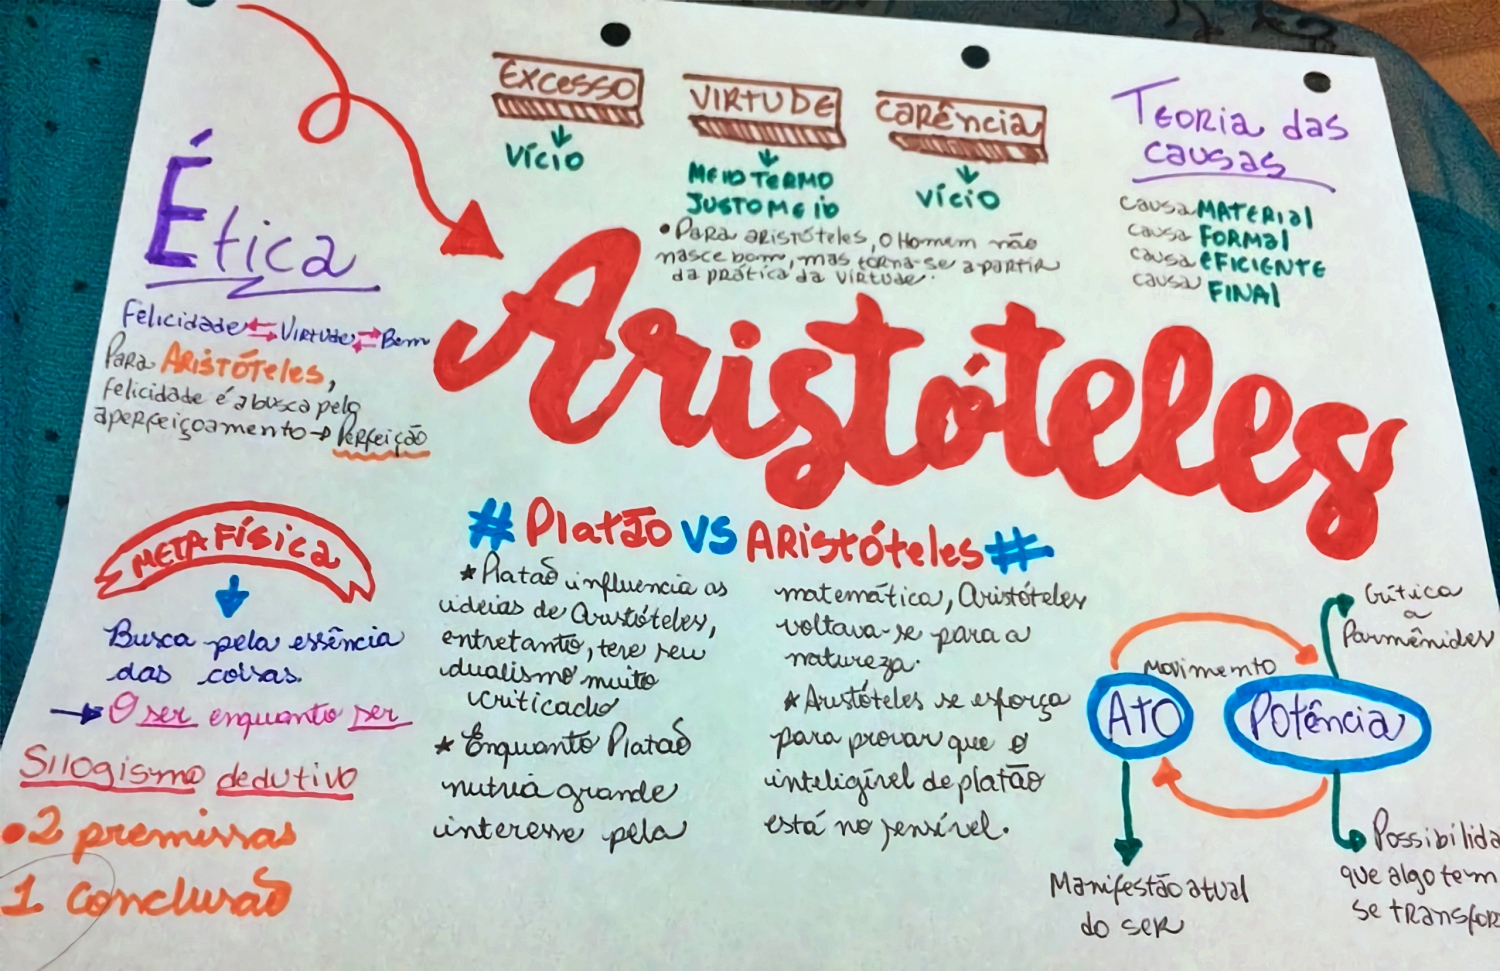 Excesso
Vício
VIRTUDE
MEIO TERMO
JUSTO MEIO
Carência
Vício
• Para Aristóteles, o Homem não
nasce bom, mas torna-se a partir
da prática da virtude.
Teoria das
causas
causa MATERIAL
causa FORMAL
causa EFICIENTE
causa FINAL
Ética
Felicidade ⇆ Virtude ⇄ Bem
Para Aristóteles,
felicidade é a busca pelo
aperfeiçoamento → Perfeição
Aristóteles
METAFÍSICA
Busca pela essência
das coisas.
→ O ser enquanto ser
Silogismo dedutivo
• 2 premissas
1 conclusão
# Platão VS Aristóteles #
* Platão influencia as
ideias de Aristóteles,
entretanto, teve seu
dualismo muito
criticado
* Enquanto Platão
nutria grande
interesse pela
matemática, Aristóteles
voltava-se para a
natureza.
* Aristóteles se esforça
para provar que o
inteligível de platão
está no sensível.
Crítica
a
Parmênides
Movimento
ATO
Potência
Manifestão atual
do ser
Possibilida
que algo tem
se transfor